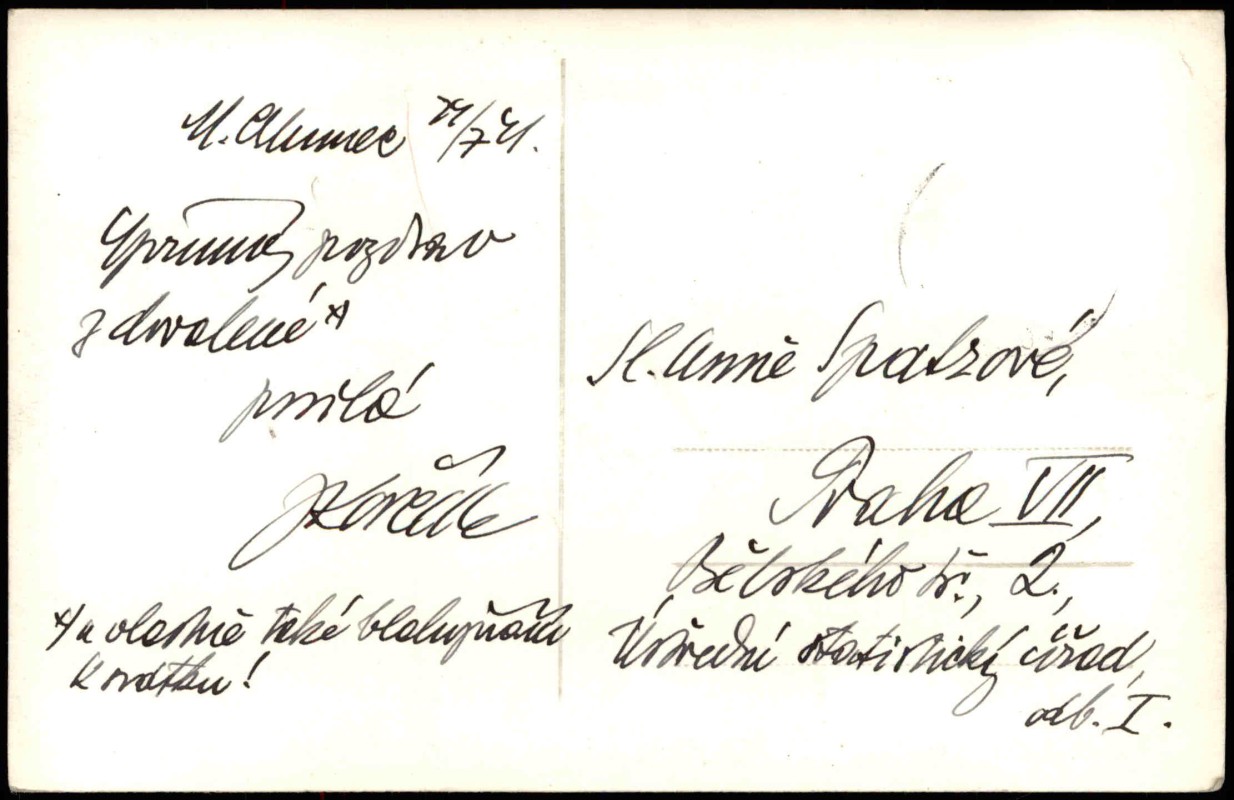 N. Chlumec 24/7 41.
Upřímný pozdrav
z dovolené x)
posílá
x) a vlastně také blahopřání
k svátku!
Sl. Anně Spatzové,
Praha VII,
Bělského tř., 2.,
Ústřední statistický úřad,
odb. I.